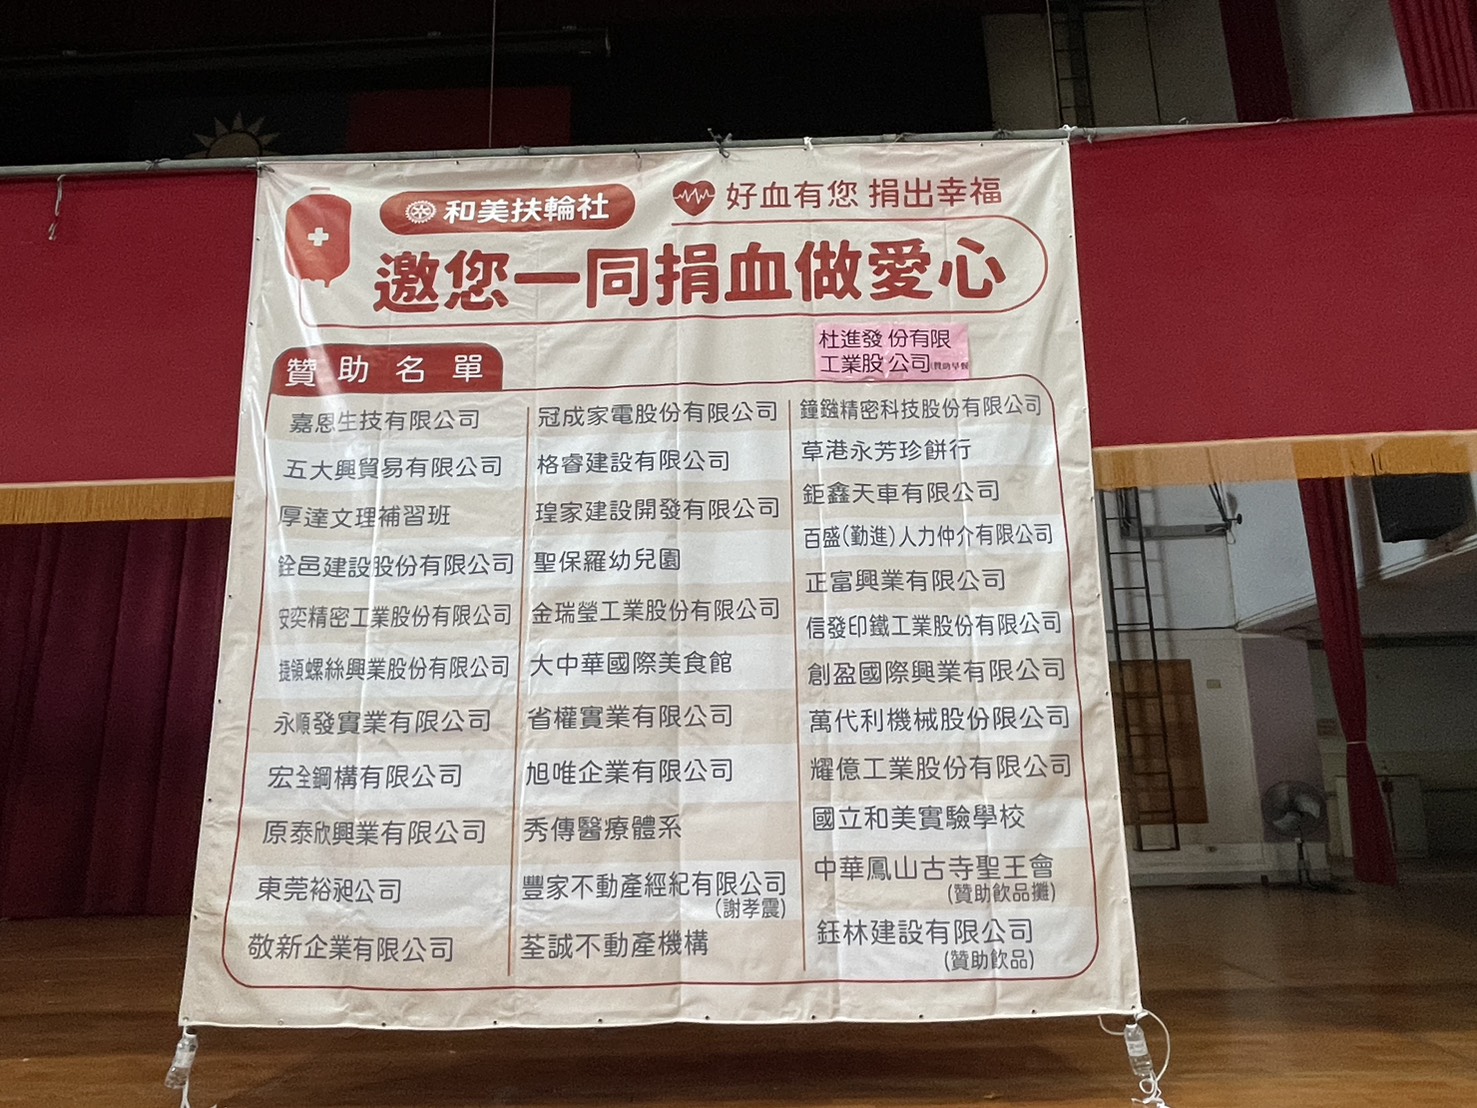 和美扶輪社
好血有您 捐出幸福
邀您一同捐血做愛心
杜進發 份有限
工業股 公司(贊助早餐
贊助名單
嘉恩生技有限公司
五大興貿易有限公司
厚達文理補習班
銓邑建設股份有限公司
安奕精密工業股份有限公司
捷領螺絲興業股份有限公司
永順發實業有限公司
宏全鋼構有限公司
原泰欣興業有限公司
東莞裕昶公司
敬新企業有限公司
冠成家電股份有限公司
格睿建設有限公司
瑝家建設開發有限公司
聖保羅幼兒園
金瑞瑩工業股份有限公司
大中華國際美食館
省權實業有限公司
旭唯企業有限公司
秀傳醫療體系
豐家不動產經紀有限公司
(謝孝震)
荃誠不動產機構
鐘鏹精密科技股份有限公司
草港永芳珍餅行
鉅鑫天車有限公司
百盛(勤進)人力仲介有限公司
正富興業有限公司
信發印鐵工業股份有限公司
創盈國際興業有限公司
萬代利機械股份限公司
耀億工業股份有限公司
國立和美實驗學校
中華鳳山古寺聖王會
(贊助飲品攤)
鈺林建設有限公司
(贊助飲品)